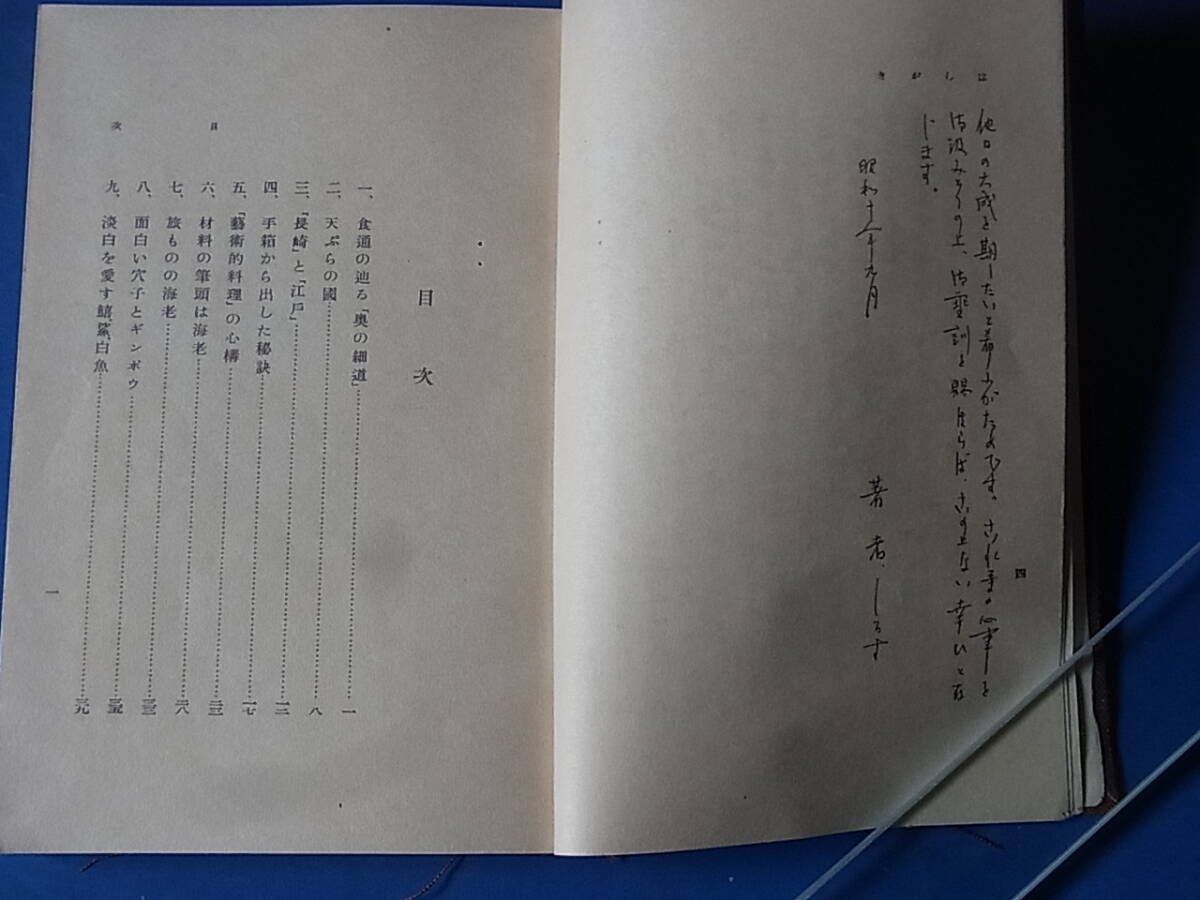 はしがき
四
他日の大成を期したいと希ふがためです。これ等の心事を
御汲みとりの上、御垂訓を賜はらば、この上ない幸ひと存
じます。
昭和十 年九月
著者しるす
目次
一、食通の辿る「奥の細道」……一
二、天ぷらの國……八
三、「長崎」と「江戸」……一二
四、手箱から出した秘訣……一七
五、「藝術的料理」の心構……二三
六、材料の筆頭は海老……二八
七、旅ものの海老……三三
八、面白い穴子とギンポウ……三五
九、淡白を愛す鱚、鯊、白魚……三九
目次
一